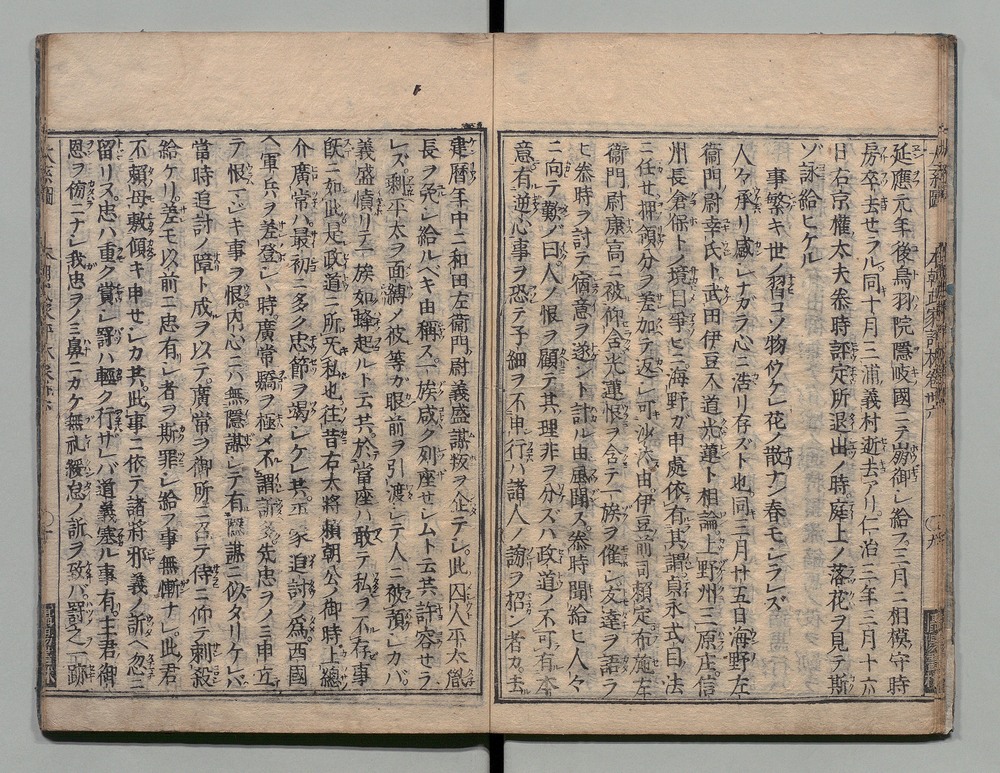 延應元年後鳥羽院隱岐國ニテ崩御シ給フ三月ニ相模守時
房卒去セラル。同十月三浦義村逝去アリ。仁治三年三月十六
日右京權太夫泰時評定所退出ノ時庭上ノ落花ヲ見テ斯
ゾ詠給ヒケル
事繁キ世ノ習コソ物ウケレ花ノ散ナン春モシラレズ
人々承リ感シナガラ心ニ浩リ存ズト也同三月廿五日海野左
衞門尉幸氏ト武田伊豆入道光蓮ト相論上野州三原庄信
州長倉保トノ境目爭ヒニ海野ガ申處依有其謂貞永式目ノ法
ニ任セ押領分ヲ差加テ返シ可沙汰由伊豆前司賴定布施左
衞門尉康高ニ被仰含光蓮恨ヲ含テ一族ヲ催シ友達ヲ語ラ
ヒ泰時ヲ討テ宿意ヲ遂ント計ル由風聞ス。泰時聞給ヒ人々
ニ向テ歎ノ曰人ノ恨ヲ顧テ其理非ヲ分ズハ政道ノ不可有本
意有逆心事ヲ恐テ子細ヲ不申行ハ諸人ノ謗ヲ招ン者カ。去
建曆年中ニ和田左衞門尉義盛謀叛ヲ企テシ。此囚人平太胤
長ヲ免シ給ルベキ由稱ス。一族咸ク列座セシムト云共許容セラ
レズ剩平太ヲ面縛ノ彼等ガ眼前ヲ引渡シテ人ニ被預シカバ
義盛憤リテ一族如蜂起ルト云共於當座ハ敢テ私ヲ不存事
既ニ如此是政道ニ所无私也往昔右大將賴朝公ノ御時上總
介廣常ハ最初ニ多ク忠節ヲ竭シケレ共。平家追討ノ爲西國
ヘ軍兵ヲ差登シ時廣常驕ヲ極メ不謂訴先忠ヲノミ申立
テ恨マジキ事ヲ恨内心ニハ無隱謀シテ有隱謀ニ似タリケレバ
當時追討ノ障ト成ヲ以テ。廣常ヲ御所ニ召テ侍ニ仰テ刺殺
給ケリ。差モ以前ニ忠有シ者ヲ斯罪シ給フ事無慚ナレ。此君
不賴母敷傾キ申セシカ共。此事ニ依テ諸將邪義ノ訴ヘ忽ニ
留リヌ。忠ハ重ク賞シ罪ハ輕ク行ザレバ道義塞ル事有。主君御
恩ヲ傍ニナシ我忠ヲノミ鼻ニカケ無礼緩怠ノ訴ヲ致バ。罸之一跡